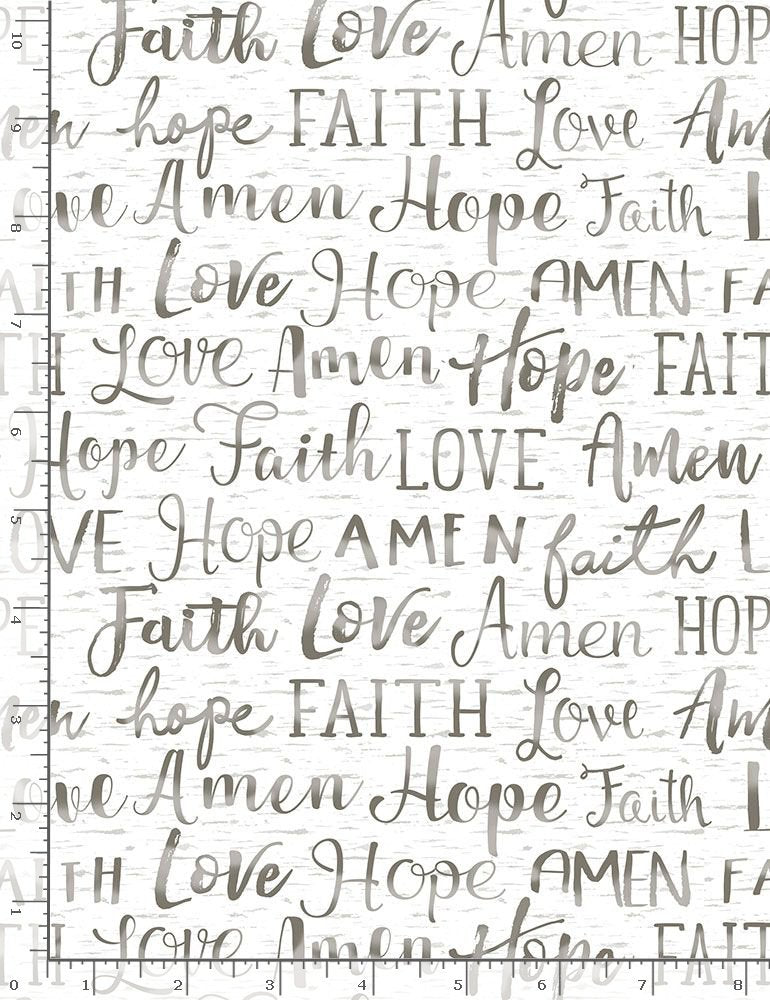 Faith Love Amen HOP
en hope FAITH Love Am
ove Amen Hope Faith L
AITH Love Hope AMEN FA
TH Love Amen Hope FAIT
Hope Faith LOVE Amen
OVE Hope AMEN faith L
PE Faith Love Amen HOP
en hope FAITH Love Am
ove Amen Hope Faith L
AITH Love Hope AMEN FA
TH Love Amen Hope FAIT
10
9
8
7
6
5
4
3
2
1
0 1 2 3 4 5 6 7 8